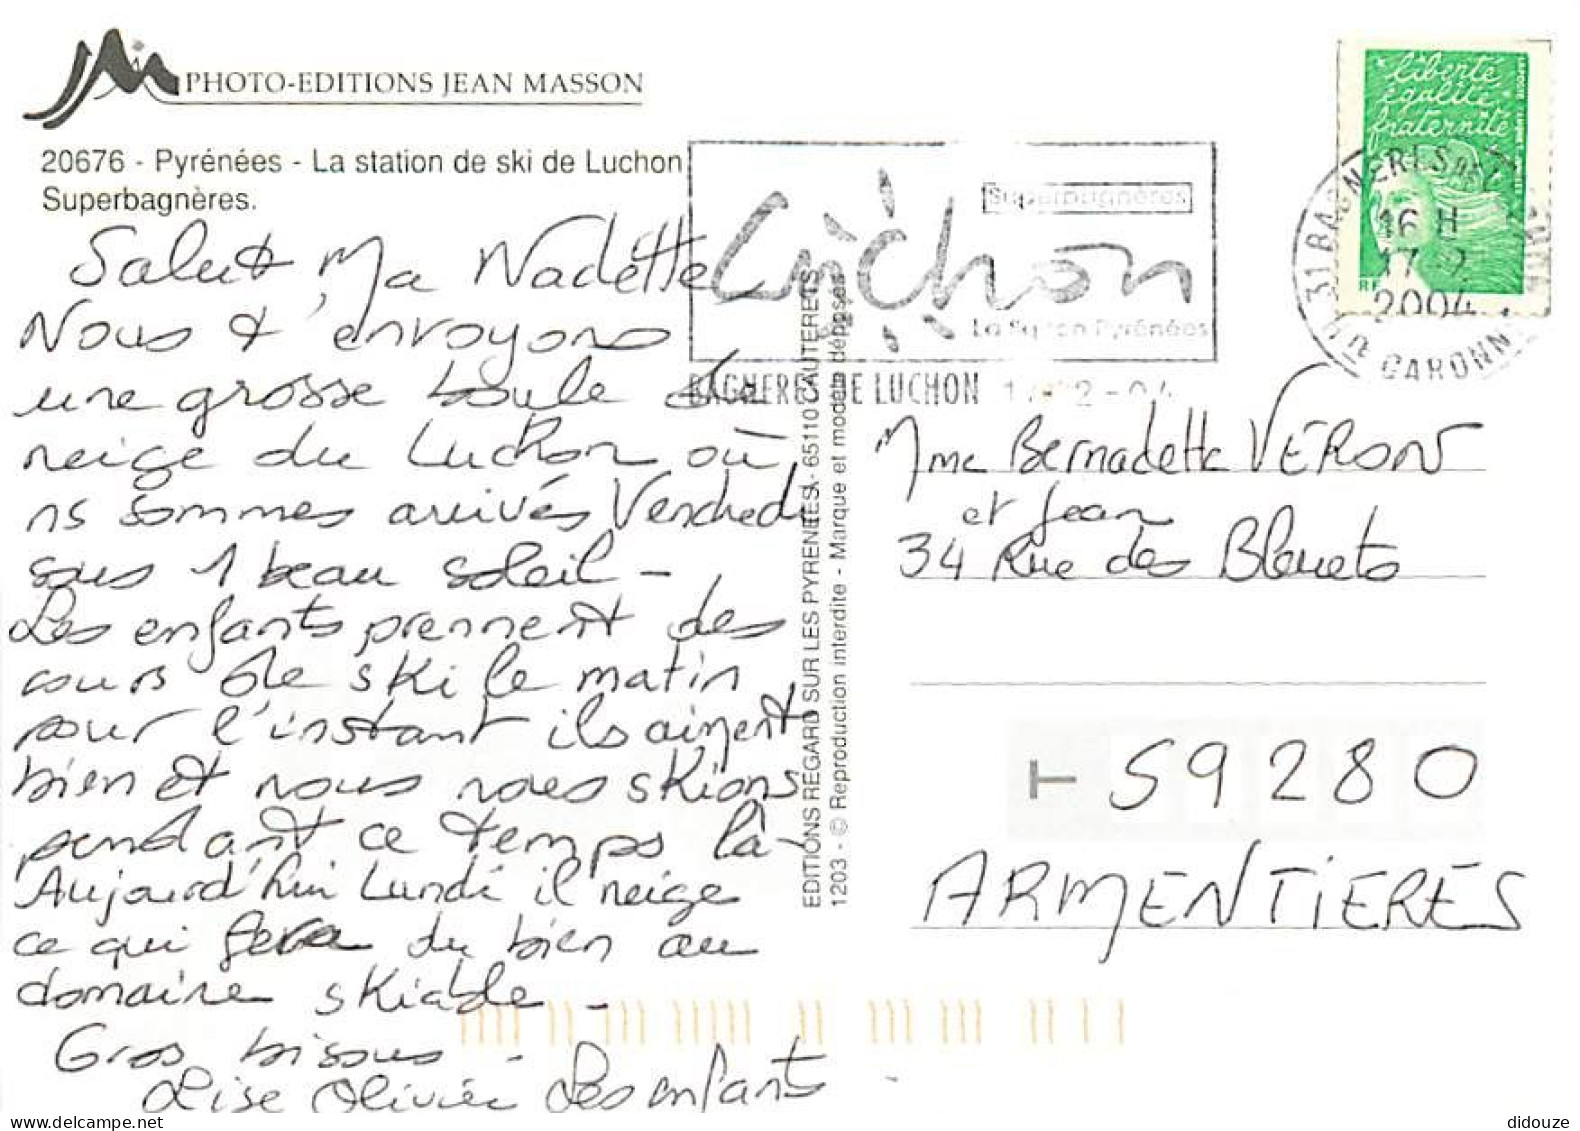 PHOTO-EDITIONS JEAN MASSON
20676 - Pyrénées - La station de ski de Luchon
Superbagnères.
Salut Ma Nadette
Nous t'envoyons
une grosse boule de
neige du Luchon où
ns sommes arrivés Vendredi
sous 1 beau soleil -
Les enfants prennent des
cours de ski le matin
pour l'instant ils aiment
bien et nous nous skions
pendant ce temps là -
Aujourd'hui Lundi il neige
ce qui fera du bien au
domaine skiable -
Gros bisous -
Lise Olivier Les enfants
EDITIONS REGARD SUR LES PYRENEES - 65110 CAUTERETS
1203 - © Reproduction interdite - Marque et modèle déposés
Superbagnères
Luchon
La Pyrénées
BAGNERES DE LUCHON
liberté
égalité
fraternité
RF
31 BAGNERES DE L
16 H
17-2
2004
Hte GARONNE
Mme Bernadette VERON
et Jean
34 Rue des Bleuets
T 59280
ARMENTIERES
didouze